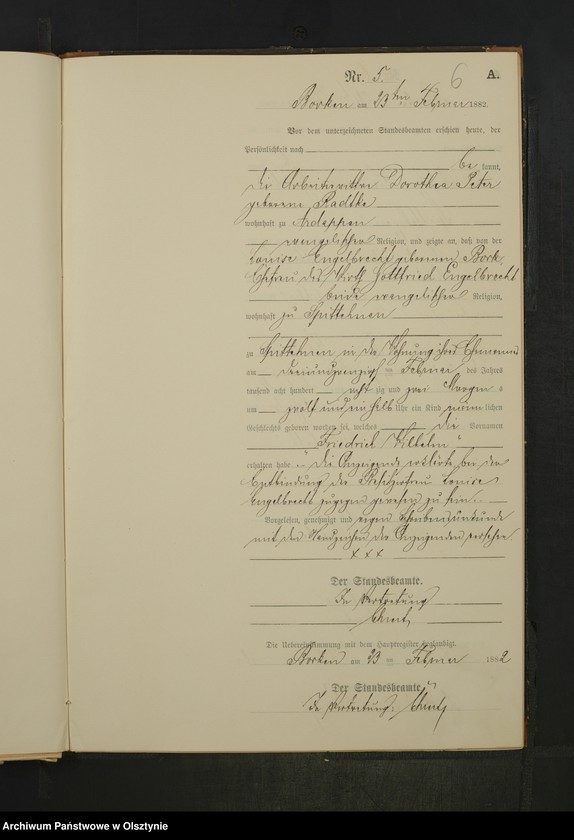 Nr. 5. 6 A.
Borken am 23ten Februar 1882.
Vor dem unterzeichneten Standesbeamten erschien heute, der
Persönlichkeit nach
be kannt,
die Arbeiterwittwe Dorothea Peter
geborene Radtke
wohnhaft zu Ardappen
evangelischer Religion, und zeigte an, daß von der
Louise Engelbrecht geborenen Bork
Ehefrau des Gottfried Engelbrecht
beide evangelischer Religion,
wohnhaft zu Spittehnen
zu Spittehnen in der Wohnung ihres Ehemannes
am dreiundzwanzigsten Februar des Jahres
tausend acht hundert acht zig und zwei Morgens
um zwölf und ein halb Uhr ein Kind männlichen
Geschlechts geboren worden sei, welches die Vornamen
Friedrich Wilhelm
erhalten habe. Die Anzeigende erklärte bei der
Entbindung der Louise
Engelbrecht zugegen gewesen zu sein.
Vorgelesen, genehmigt und wegen Schreibensunkunde
mit den Handzeichen der Anzeigenden versehen
x x x
Der Standesbeamte.
In Vertretung
Die Uebereinstimmung mit dem Hauptregister beglaubigt.
Borken am 23 ten Februar 1882
Der Standesbeamte
In Vertretung
Archiwum Państwowe w Olsztynie